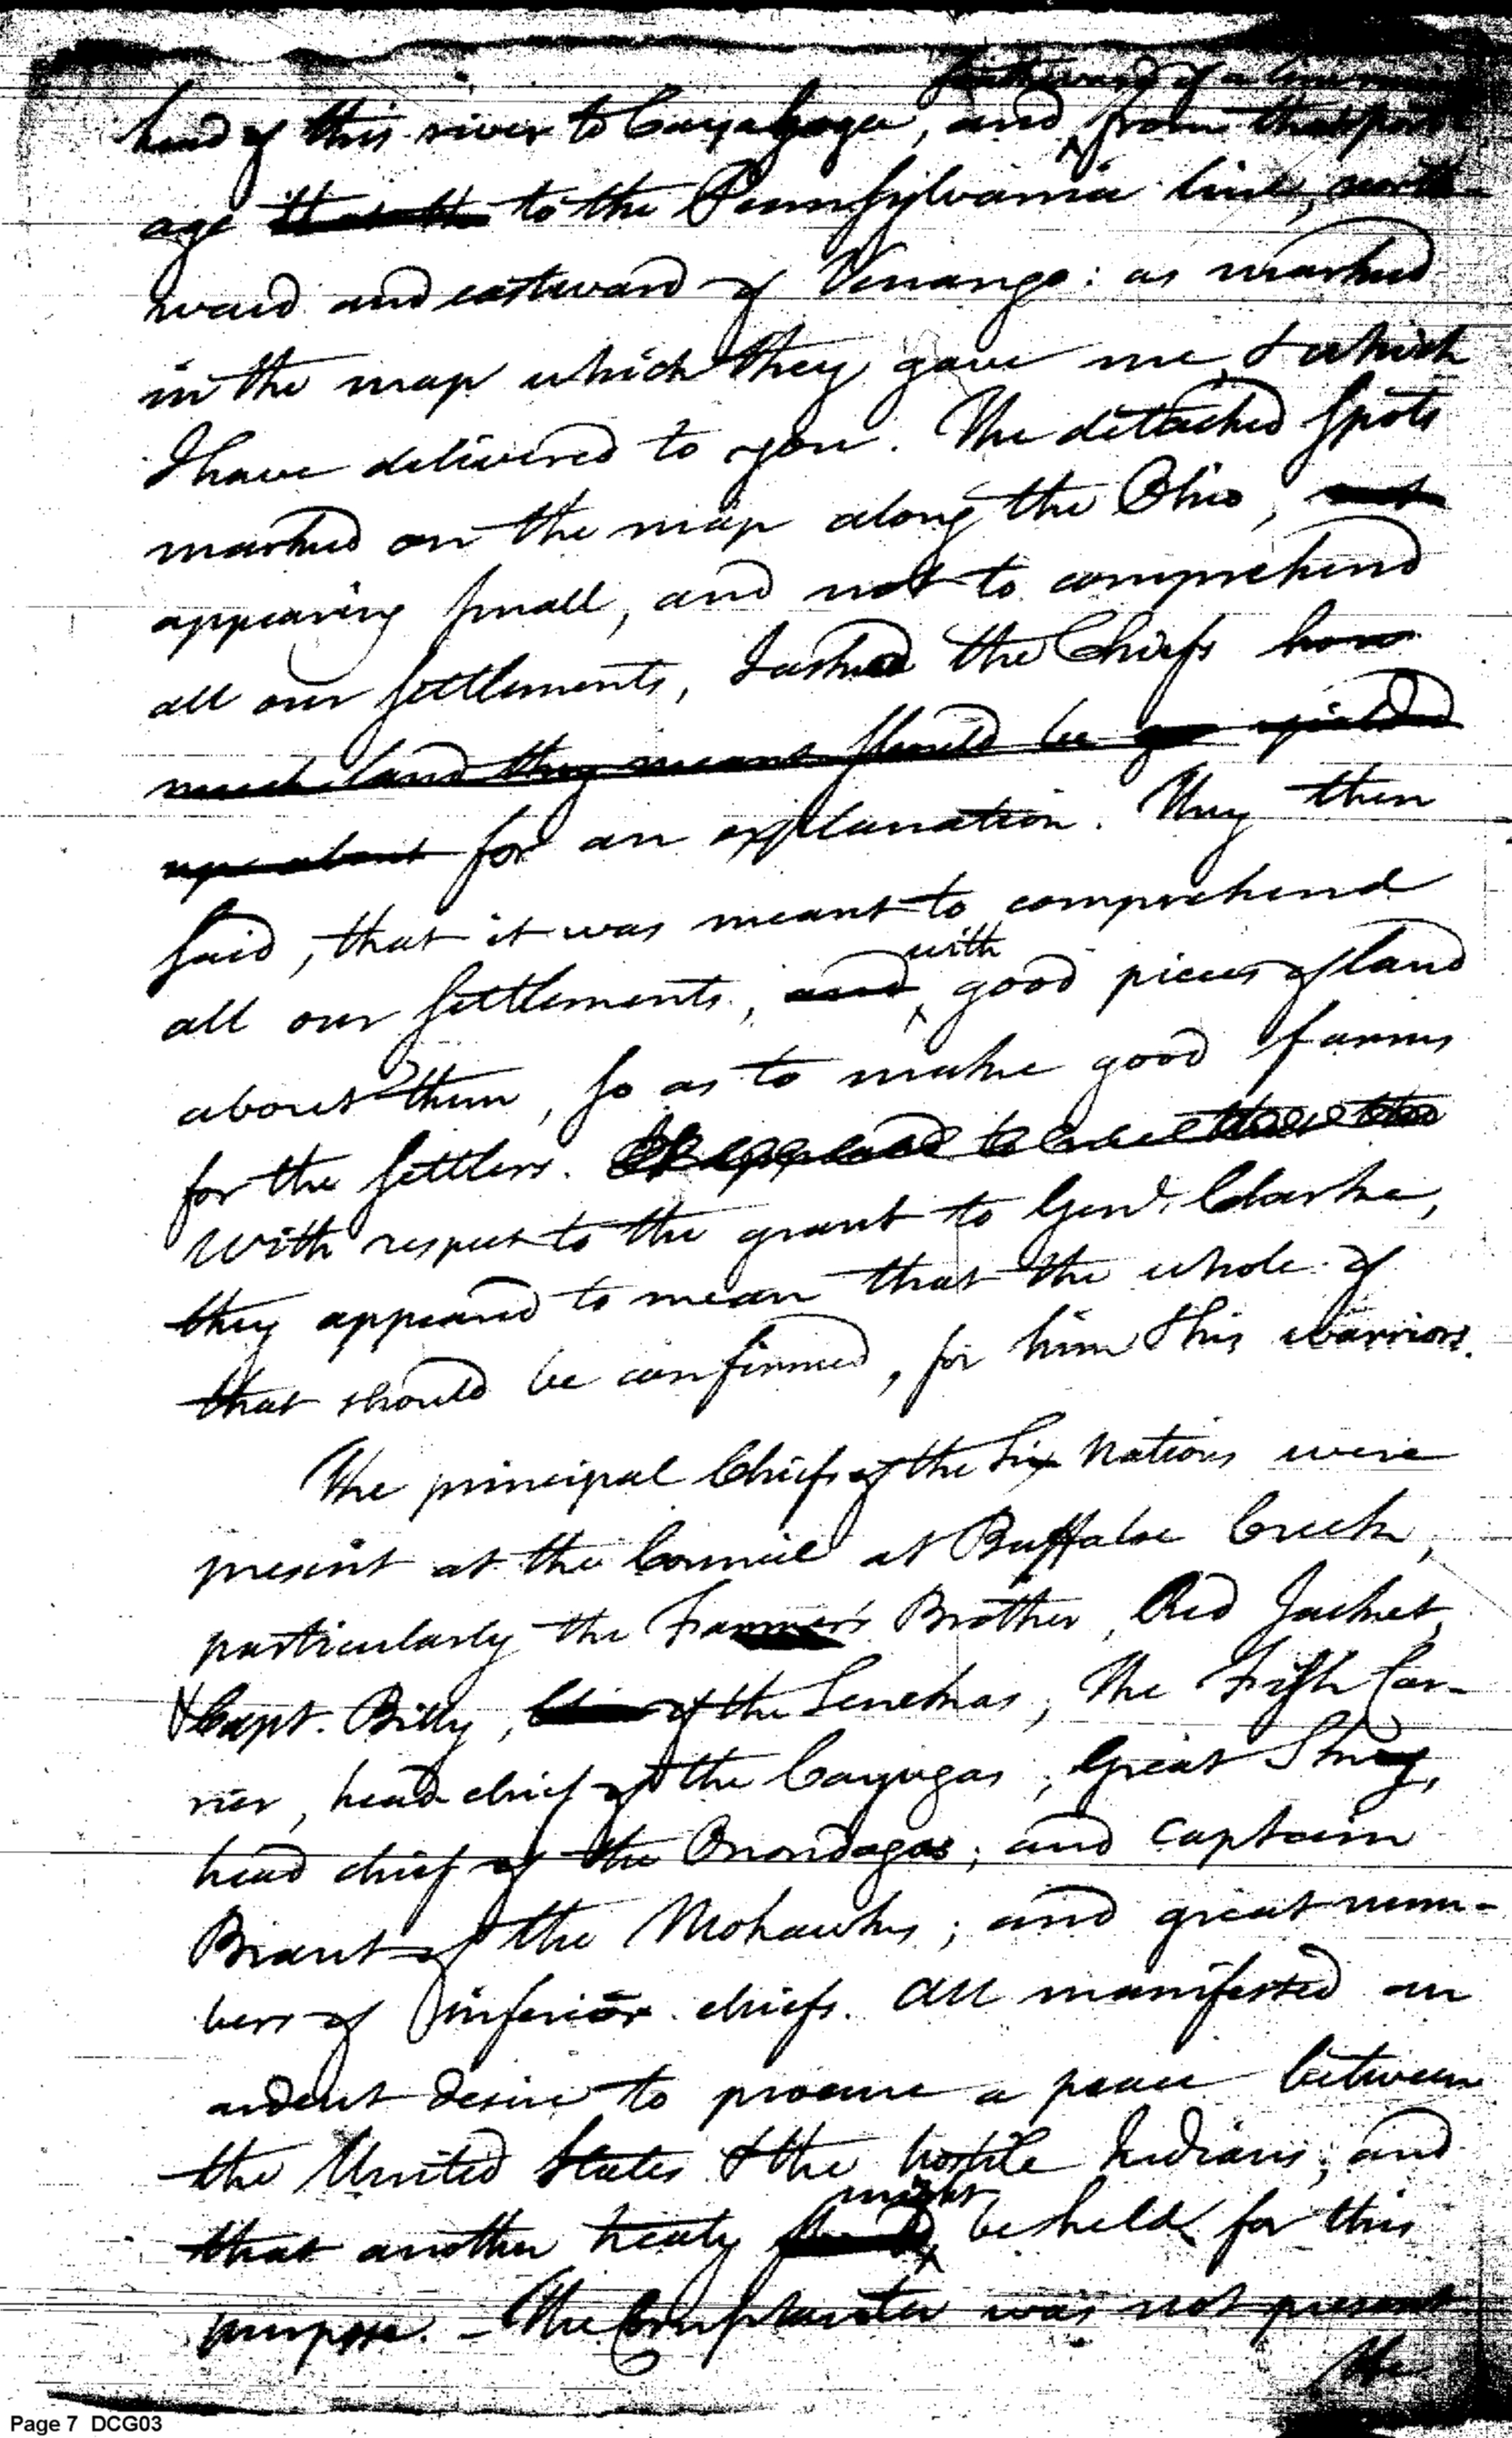 southward of a line
head of this river to Cayahoga, and from that port
age to the Pennsylvania line, north
ward and eastward of Venango: as marked
in the map which they gave me, & which
I have delivered to you. The detached spots
marked on the map along the Ohio,
appearing small, and not to comprehend
all our settlements, I asked the Chiefs how
much land they meant should be yielded
up about for an explanation. They then
said, that it was meant to comprehend
with
all our settlements, and good pieces of land
about them, so as to make good farms
for the settlers. It appeared to
With respect to the grant to Genl. Clarke,
they appeared to mean that the whole of
that should be confirmed, for him & his warriors.
The principal Chiefs of the Six Nations were
present at the Council at Buffaloe Creek,
particularly the Farmer's Brother, Red Jacket
& Capt. Billy, of the Senekas; The Fish Car-
rier, head chief of the Cayugas; Great Sky,
head chief of the Onondagas; and Captain
Brant of the Mohawks; and great num-
bers of inferior chiefs. All manifested an
ardent desire to procure a peace between
the United States & the hostile Indians; and
might
that another treaty should be held for this
purpose. - The Cornplanter was not present
He
Page 7 DCG03